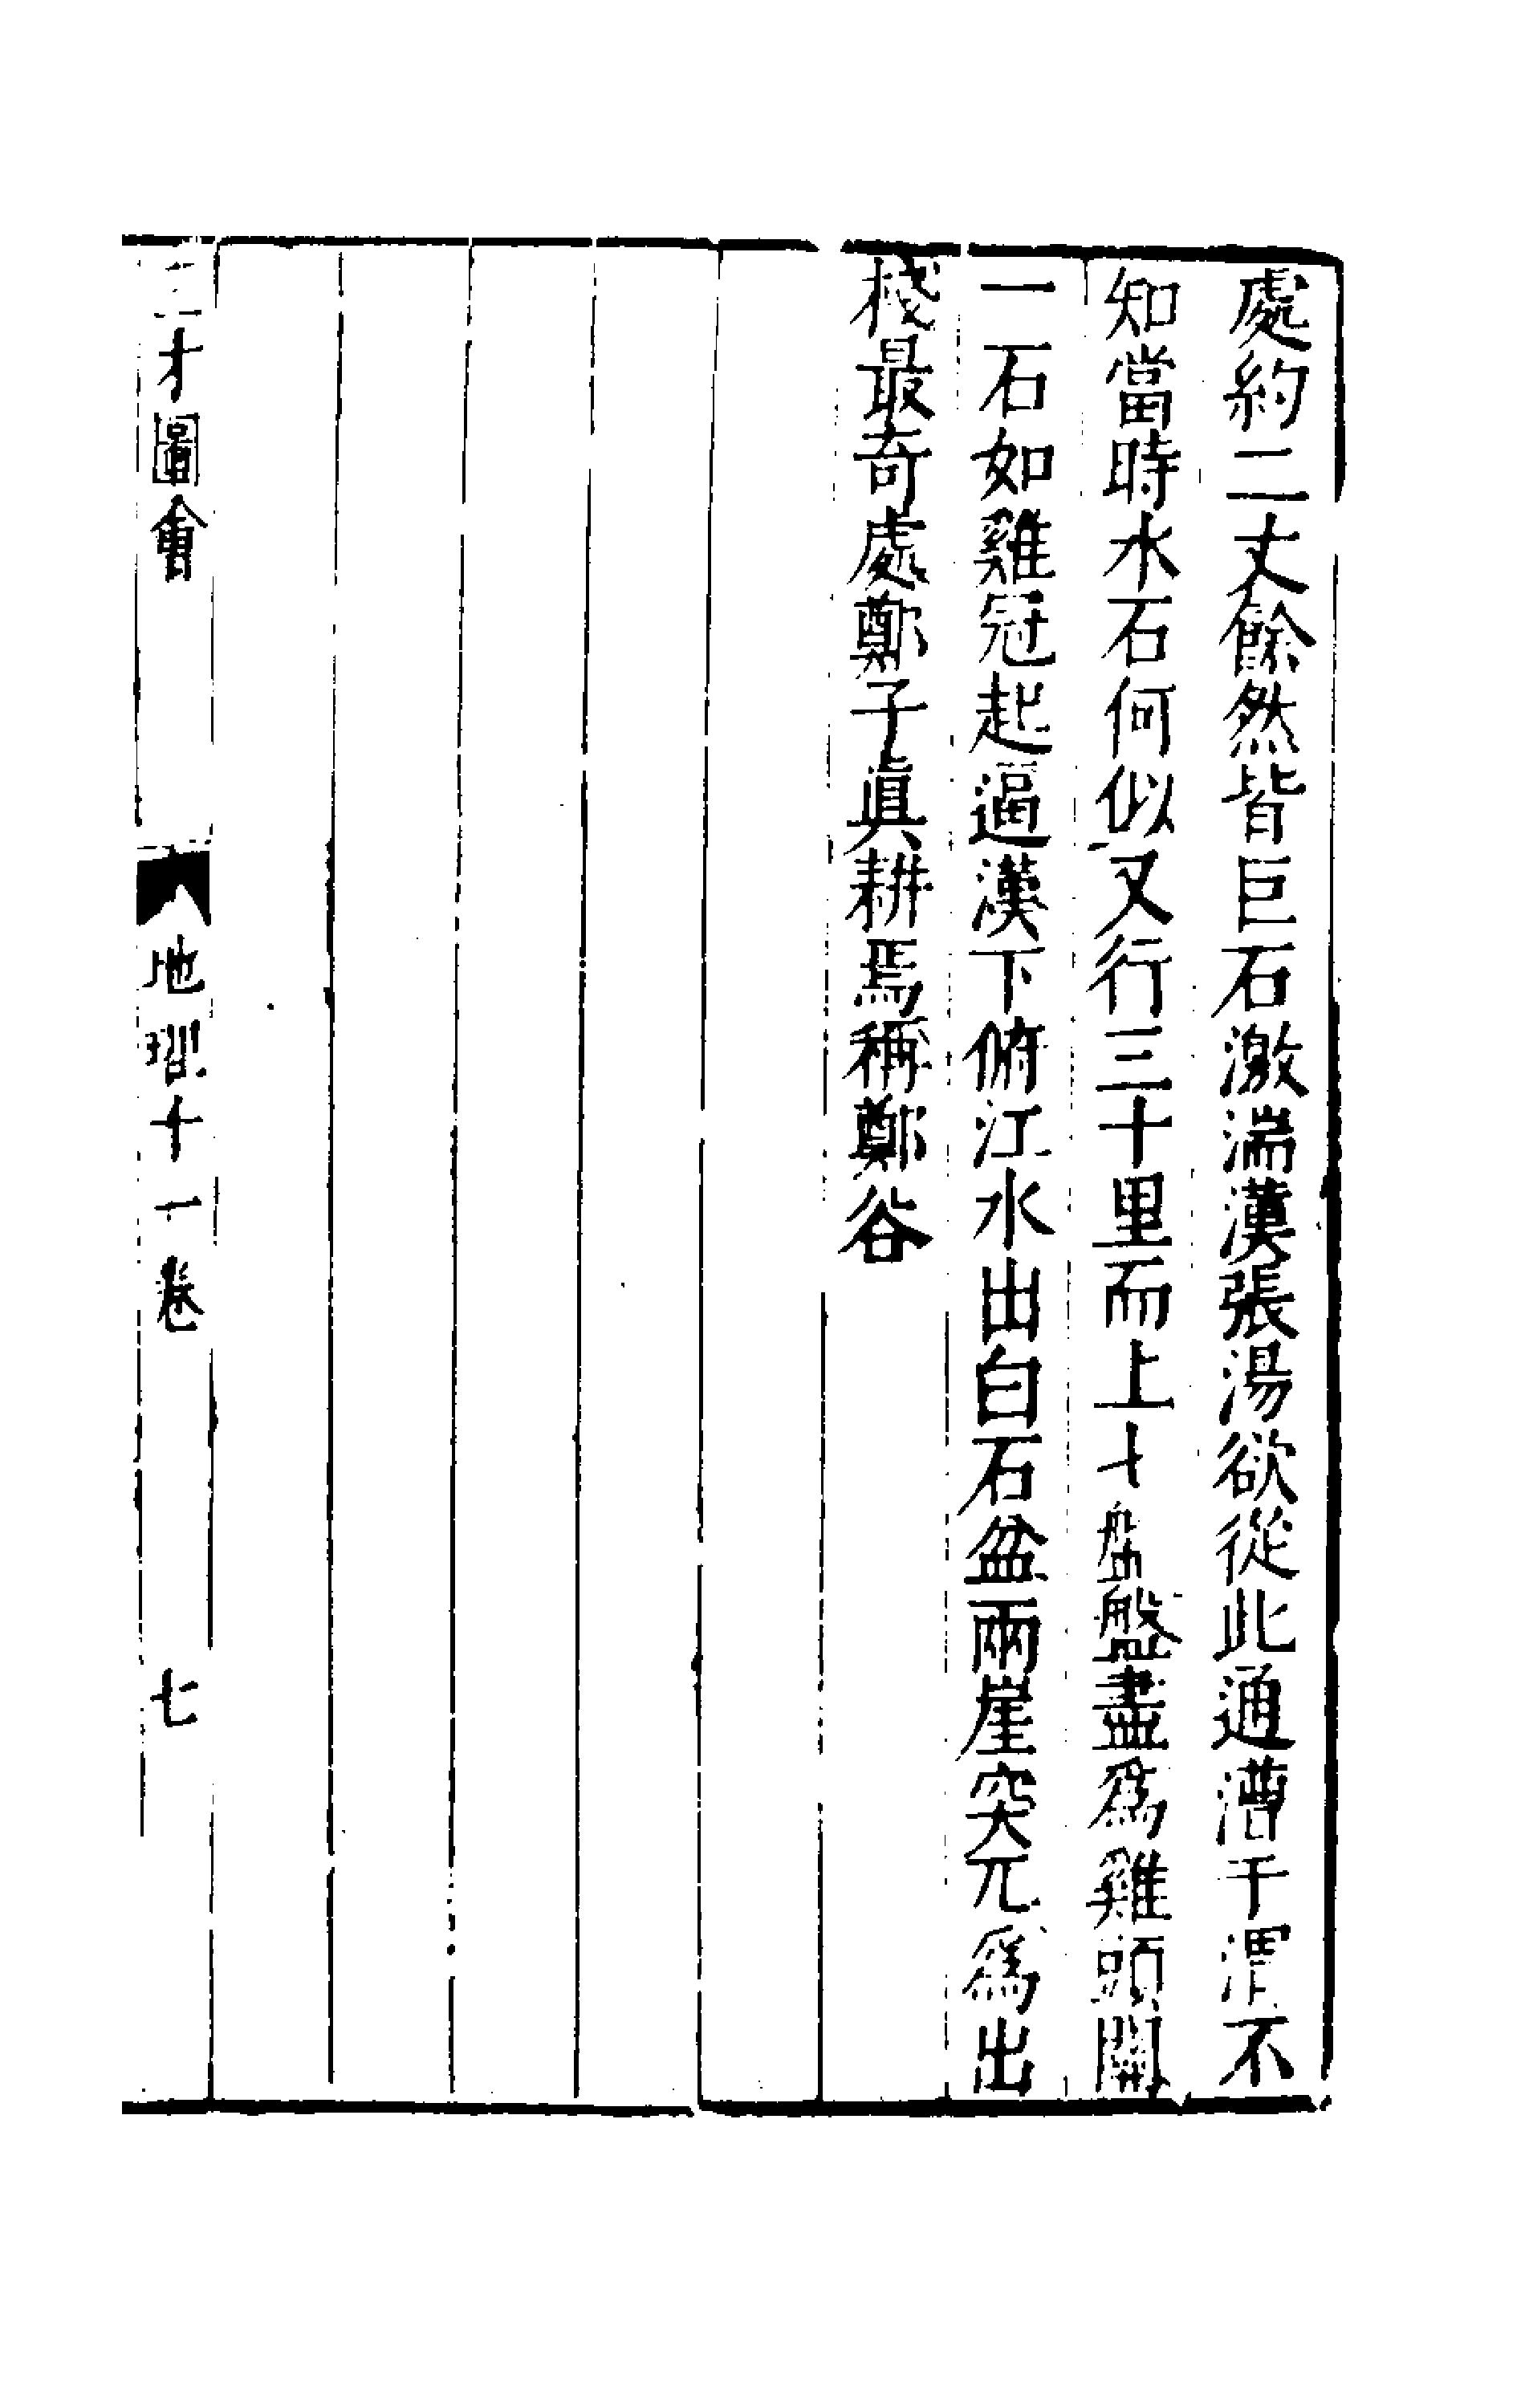 處約二丈餘然皆巨石激湍漢張湯欲從此通漕于渭不
知當時水石何似又行三十里而上七盤盤盡爲雞頭關
一石如雞冠起逼漢下俯江水出白石盆兩崖突兀爲出
棧最奇處鄭子眞耕焉稱鄭谷
三才圖會 地理十一卷 七